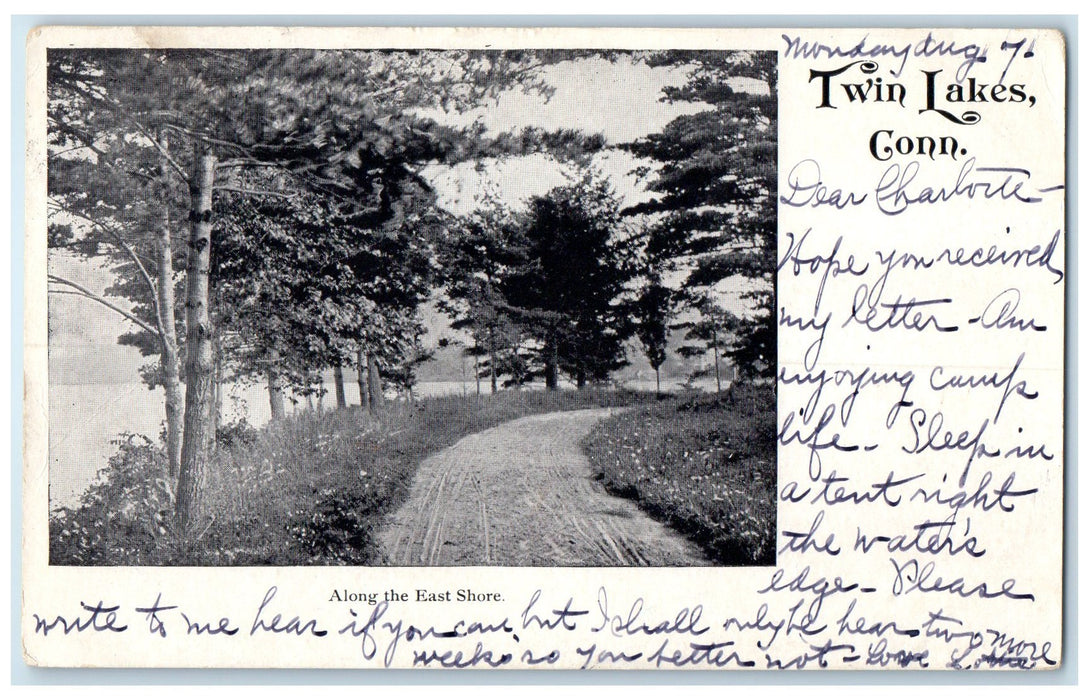 Monday Aug 7.
Twin Lakes,
Conn.
Dear Charlotte -
Hope you received
my letter - Am
enjoying camp
life - Sleep in
a tent right
the water's
edge - Please
Along the East Shore.
write to me hear if you can, but I shall only be hear two more
weeks so you better not - Love